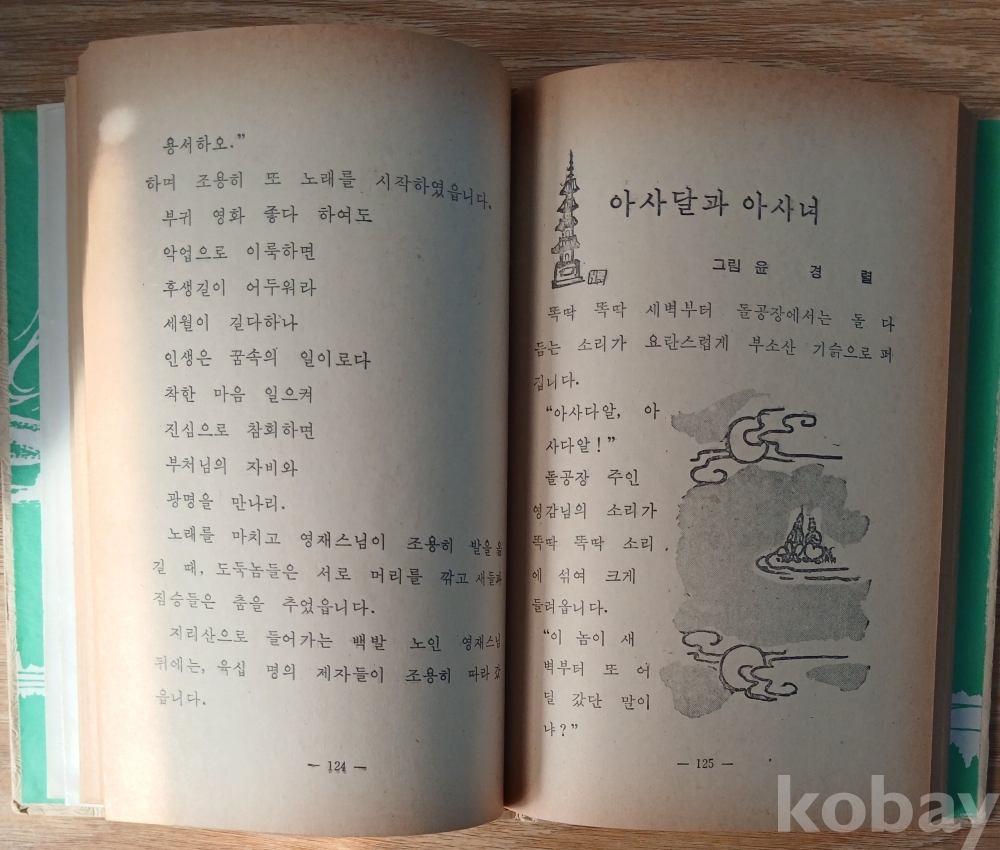 용서하오.”
하며 조용히 또 노래를 시작하였읍니다.
부귀 영화 좋다 하여도
악업으로 이룩하면
후생길이 어두워라
세월이 길다하나
인생은 꿈속의 일이로다
착한 마음 일으켜
진심으로 참회하면
부처님의 자비와
광명을 만나리.
노래를 마치고 영재스님이 조용히 발을 옮
길 때, 도둑놈들은 서로 머리를 깎고 새들과
짐승들은 춤을 추었읍니다.
지리산으로 들어가는 백발 노인 영재스님
뒤에는, 육십 명의 제자들이 조용히 따라 갔
읍니다.
— 124 —
아사달과 아사녀
그림 윤 경 렬
똑딱 똑딱 새벽부터 돌공장에서는 돌 다
듬는 소리가 요란스럽게 부소산 기슭으로 퍼
집니다.
“아사다알, 아
사다알!”
돌공장 주인
영감님의 소리가
똑딱 똑딱 소리
에 섞여 크게
들려옵니다.
“이 놈이 새
벽부터 또 어
딜 갔단 말이
냐?”
— 125 —
kobay